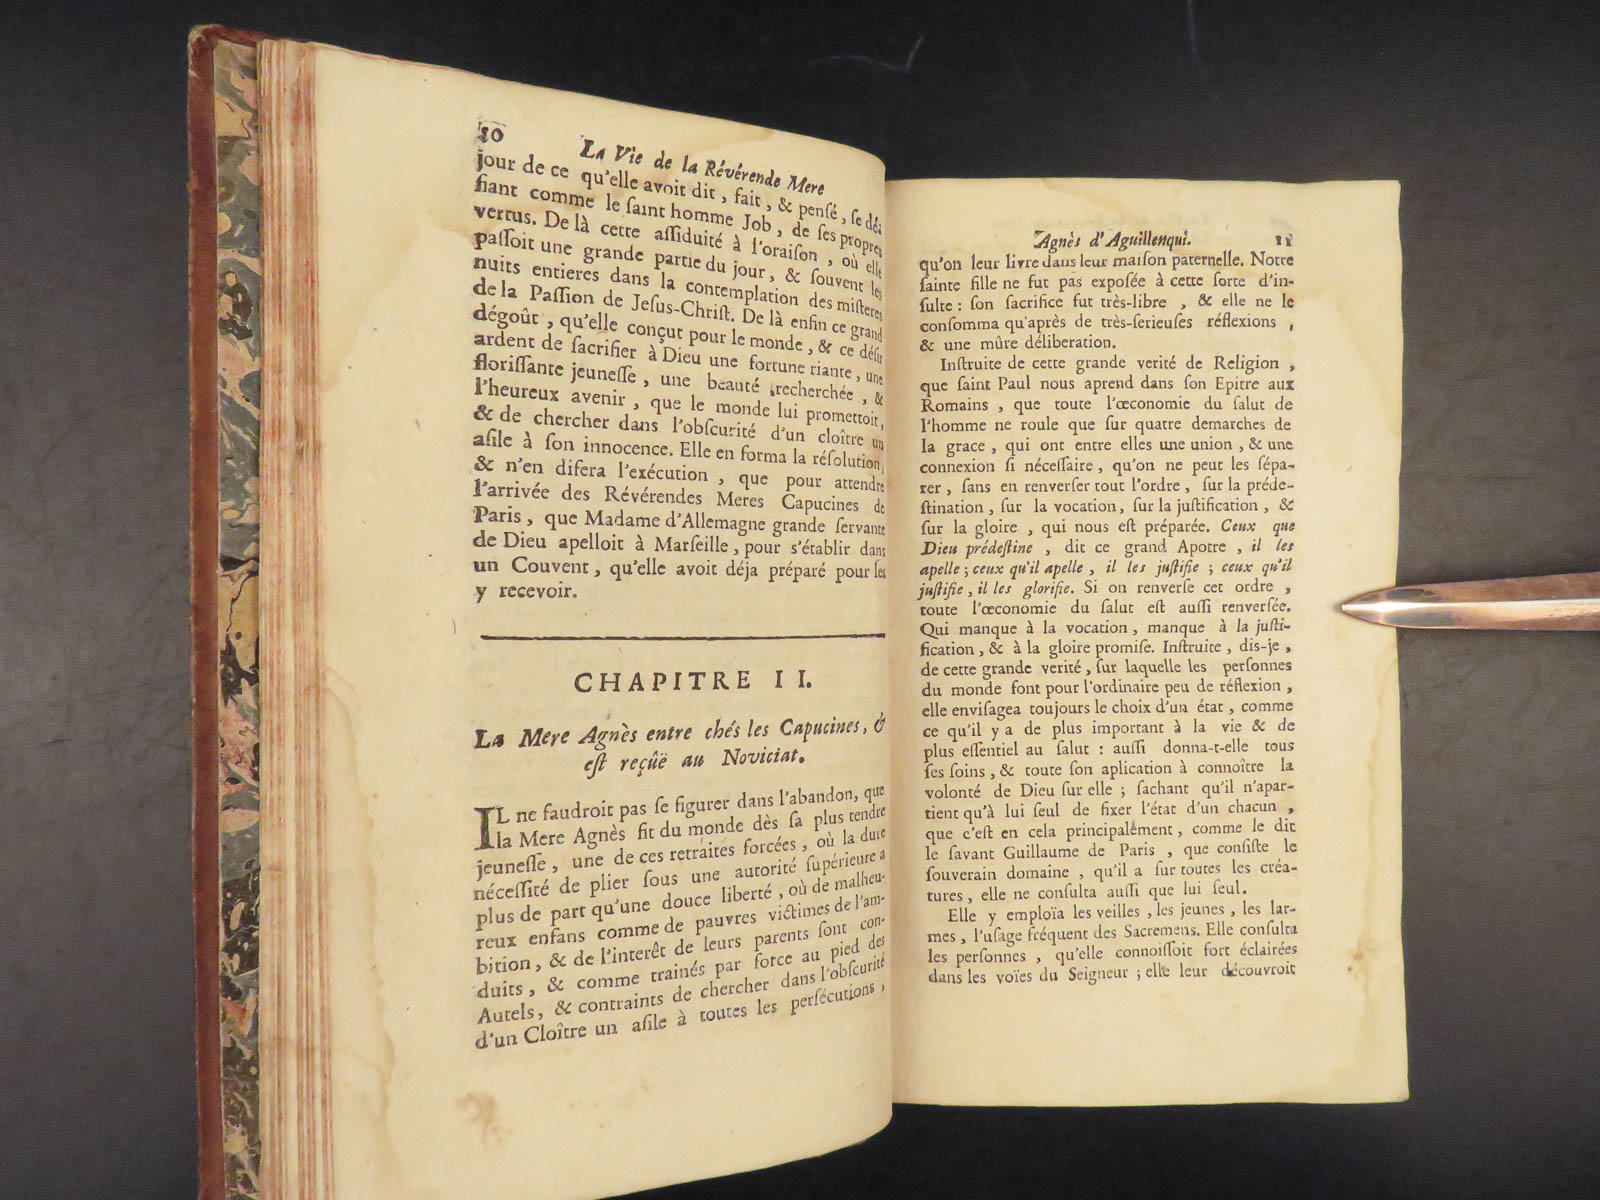 10
La Vie de la Révérende Mere
jour de ce qu'elle avoit dit, fait, & pensé, se dé-
fiant comme le saint homme Job, de ses propres
vertus. De là cette assiduité à l'oraison, où elle
passoit une grande partie du jour, & souvent les
nuits entieres dans la contemplation des misteres
de la Passion de Jesus-Christ. De là enfin ce grand
dégoût, qu'elle conçut pour le monde, & ce désir
ardent de sacrifier à Dieu une fortune riante, une
florissante jeunesse, une beauté recherchée, &
l'heureux avenir, que le monde lui promettoit,
& de chercher dans l'obscurité d'un cloître un
asile à son innocence. Elle en forma la résolution,
& n'en difera l'exécution, que pour attendre
l'arrivée des Révérendes Meres Capucines de
Paris, que Madame d'Allemagne grande servante
de Dieu apelloit à Marseille, pour s'établir dans
un Couvent, qu'elle avoit déja préparé pour les
y recevoir.
CHAPITRE II.
La Mere Agnès entre chés les Capucines, &
est reçûë au Noviciat.
IL ne faudroit pas se figurer dans l'abandon, que
la Mere Agnès fit du monde dès sa plus tendre
jeunesse, une de ces retraites forcées, où la dure
nécessité de plier sous une autorité supérieure a
plus de part qu'une douce liberté, où de malheu-
reux enfans comme de pauvres victimes de l'am-
bition, & de l'interêt de leurs parents sont con-
duits, & comme trainés par force au pied des
Autels, & contraints de chercher dans l'obscurité
d'un Cloître un asile à toutes les persécutions,
Agnès d'Aguillenqui. 11
qu'on leur livre dans leur maison paternelle. Notre
sainte fille ne fut pas exposée à cette sorte d'in-
sulte : son sacrifice fut très-libre, & elle ne le
consomma qu'après de très-serieuses réflexions,
& une mûre déliberation.
Instruite de cette grande verité de Religion,
que saint Paul nous aprend dans son Epitre aux
Romains, que toute l'œconomie du salut de
l'homme ne roule que sur quatre demarches de
la grace, qui ont entre elles une union, & une
connexion si nécessaire, qu'on ne peut les sépa-
rer, sans en renverser tout l'ordre, sur la préde-
stination, sur la vocation, sur la justification, &
sur la gloire, qui nous est préparée. Ceux que
Dieu prédestine, dit ce grand Apotre, il les
apelle ; ceux qu'il apelle, il les justifie ; ceux qu'il
justifie, il les glorifie. Si on renverse cet ordre,
toute l'œconomie du salut est aussi renversée.
Qui manque à la vocation, manque à la justi-
fication, & à la gloire promise. Instruite, dis-je,
de cette grande verité, sur laquelle les personnes
du monde font pour l'ordinaire peu de réflexion,
elle envisagea toujours le choix d'un état, comme
ce qu'il y a de plus important à la vie & de
plus essentiel au salut : aussi donna-t-elle tous
ses soins, & toute son aplication à connoître la
volonté de Dieu sur elle ; sachant qu'il n'apar-
tient qu'à lui seul de fixer l'état d'un chacun,
que c'est en cela principalement, comme le dit
le savant Guillaume de Paris, que consiste le
souverain domaine, qu'il a sur toutes les créa-
tures, elle ne consulta aussi que lui seul.
Elle y emploïa les veilles, les jeunes, les lar-
mes, l'usage fréquent des Sacremens. Elle consulta
les personnes, qu'elle connoissoit fort éclairées
dans les voïes du Seigneur ; elle leur découvroit